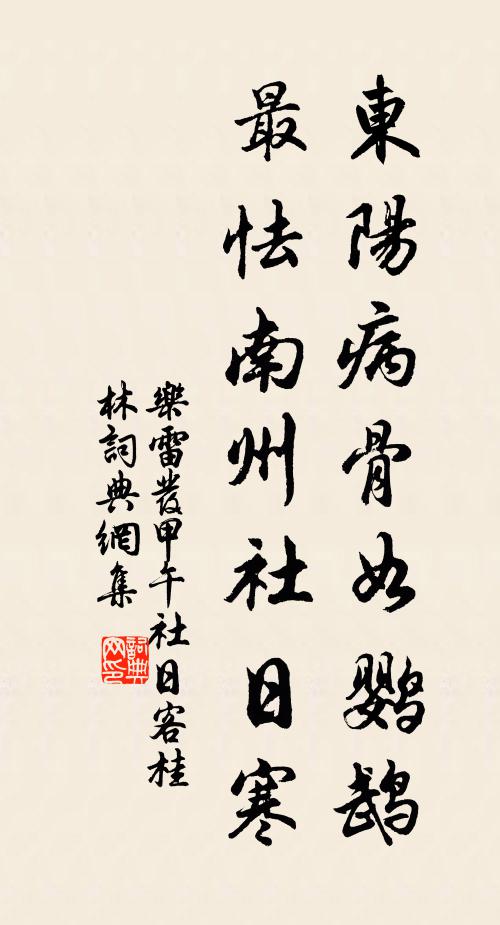 東陽病骨如鸚鵡
最怯南州社日寒
樂雷發甲午社日客桂
林詞典網集
詞典网印